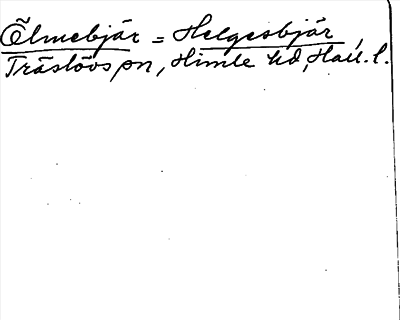 Õlmebjär = Helgesbjär,
Träslövs sn, Himle hd, Hall. l.